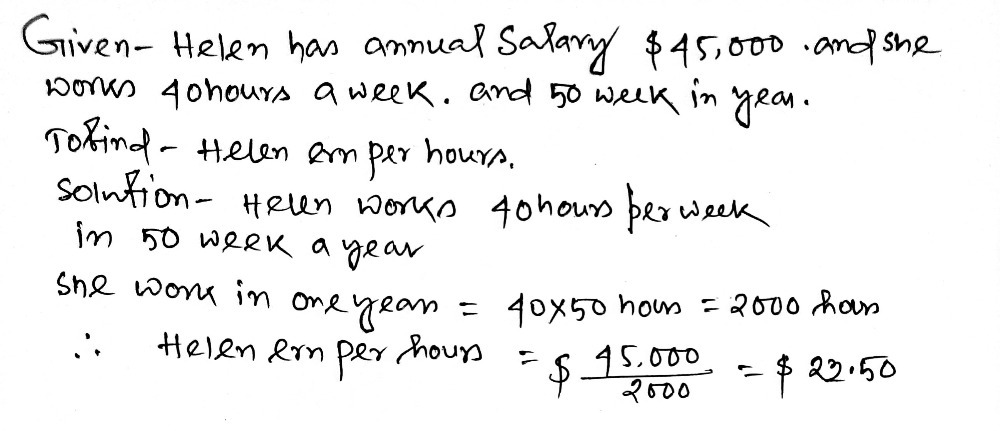 Given- Helen has annual Salary $45,000 .and she
works 40hours a week. and 50 week in year.
Tofind- Helen ern per hours.
Solution- Helen works 40hours per week
in 50 week a year
She work in one year = 40X50 hours = 2000 hours
∴ Helen ern per hours = $ 45.000/2000 = $ 22.50